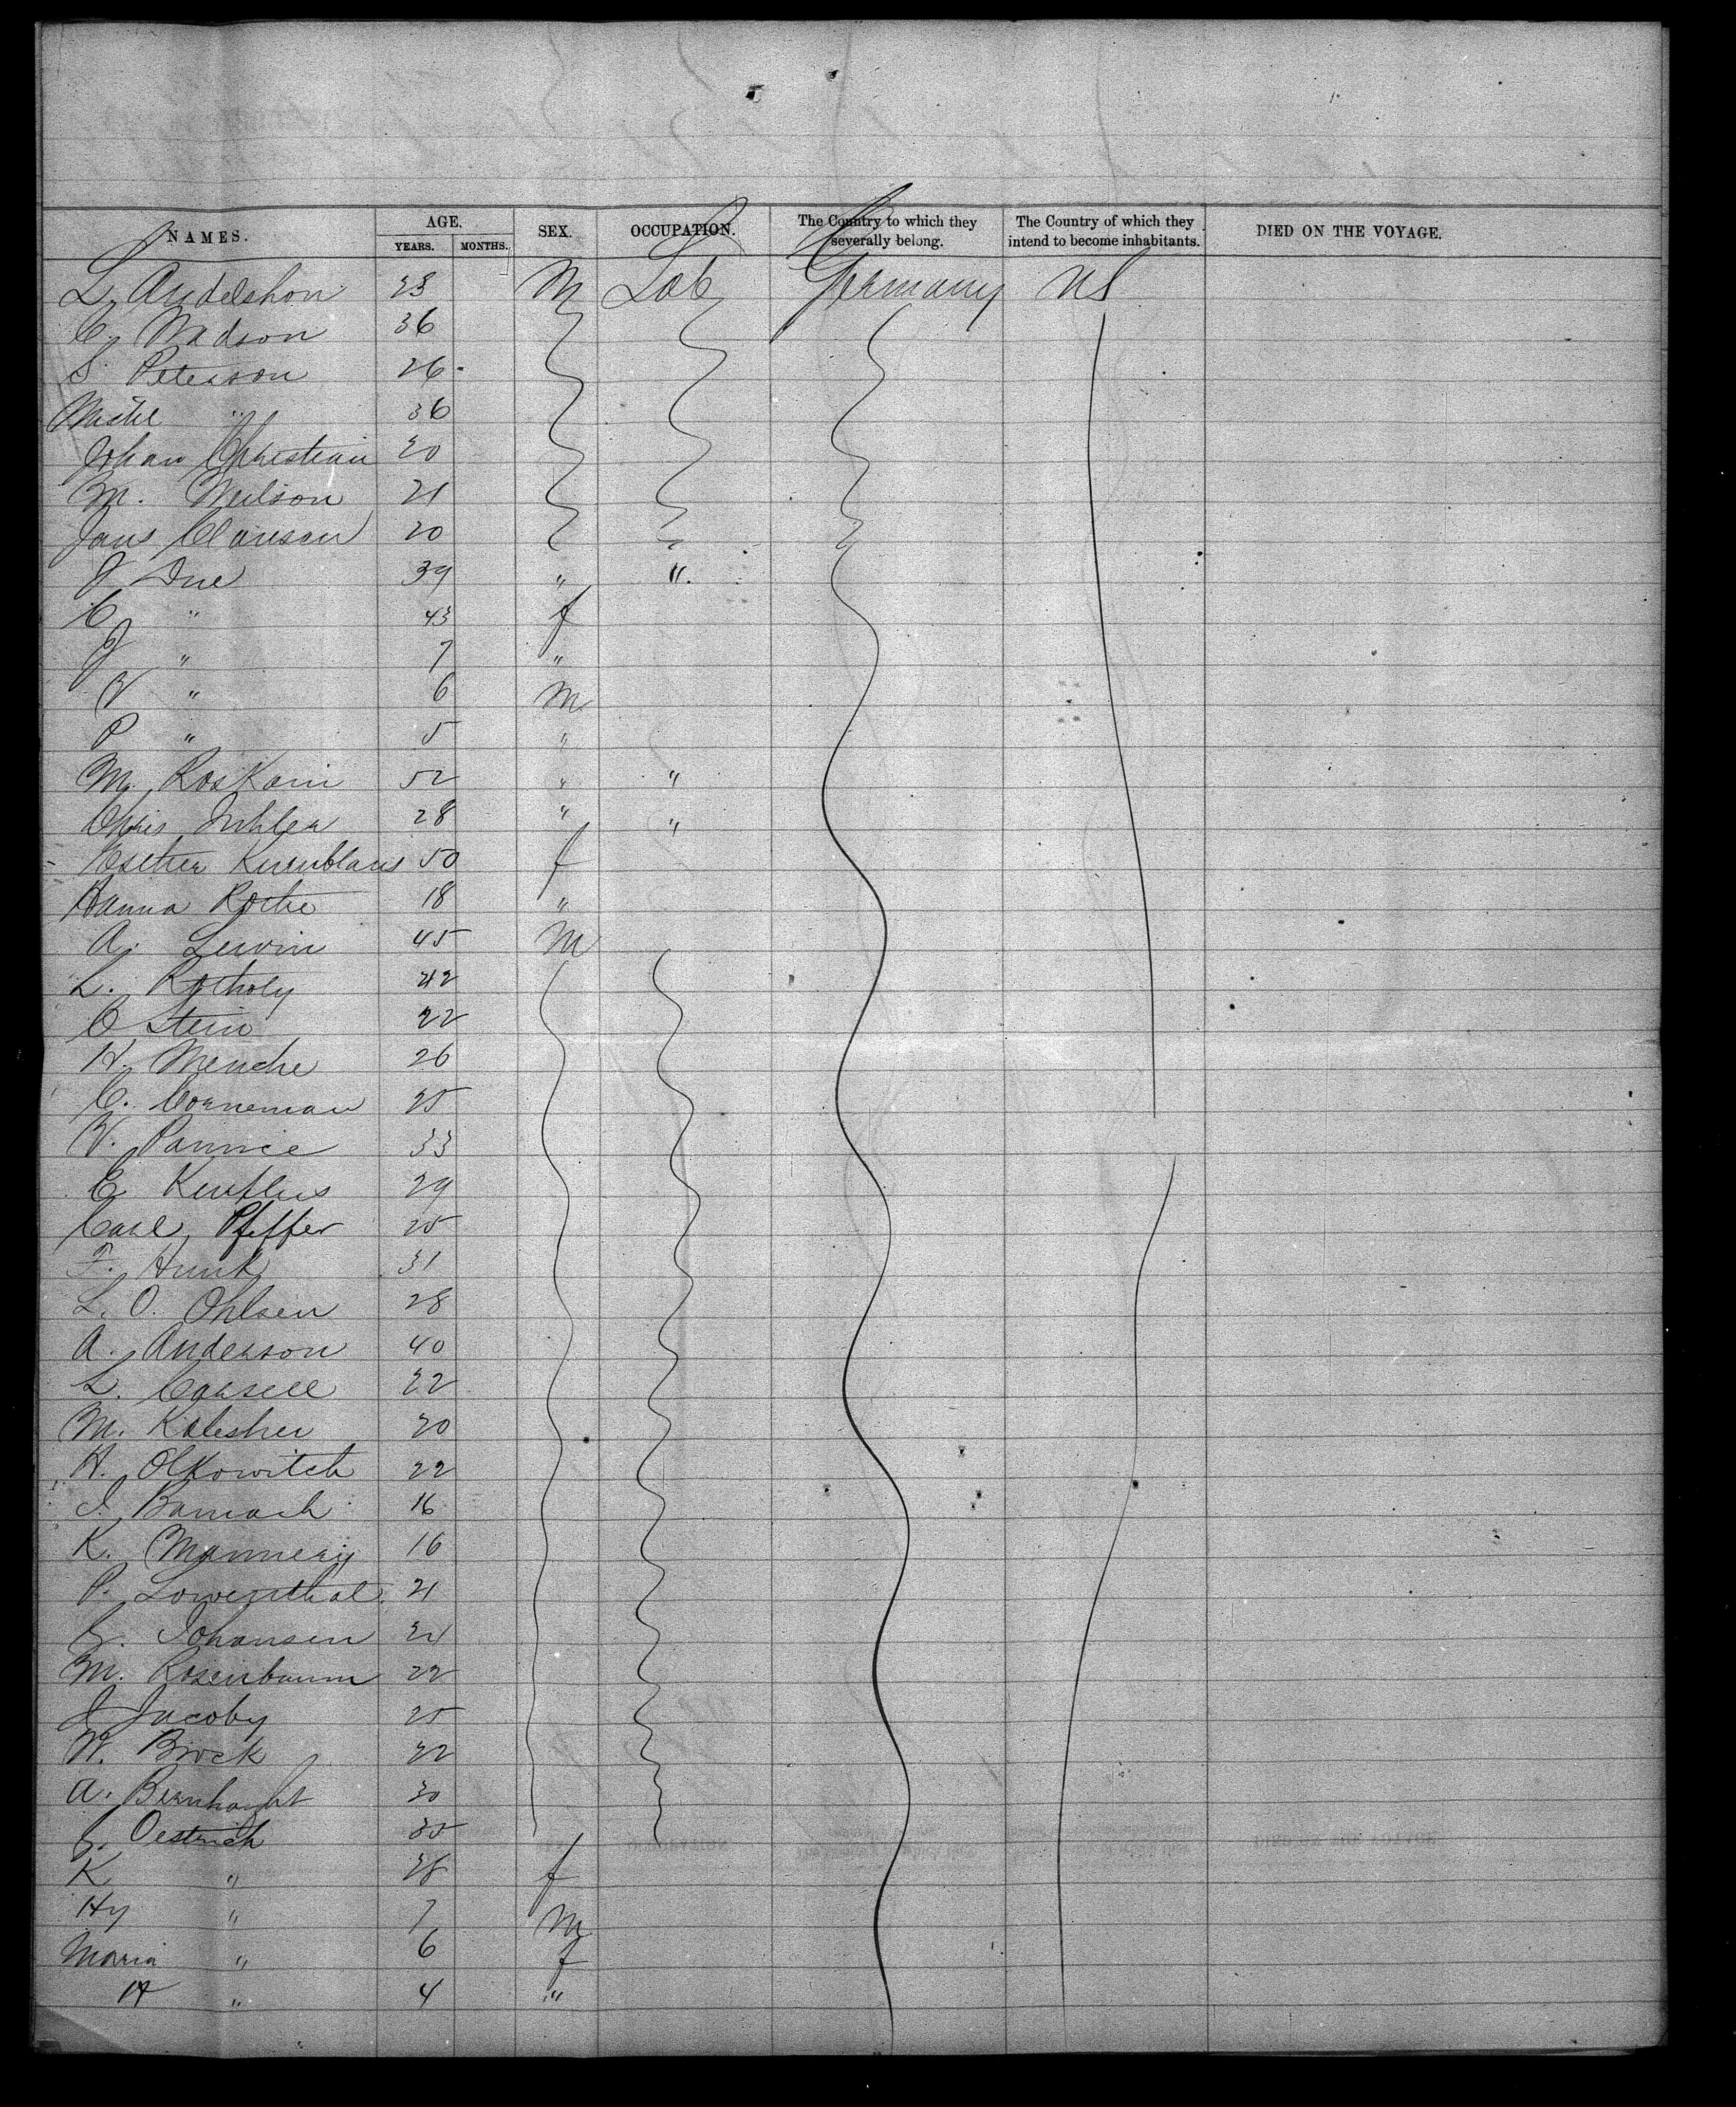 NAMES. AGE. YEARS. MONTHS. SEX. OCCUPATION. The Country to which they severally belong. The Country of which they intend to become inhabitants. DIED ON THE VOYAGE.
L. 23 M Lab Germany US
C. Madson 36
S. Peterson 26
" 36
Johan Christian 20
M. Neilson 21
Jans Clausen 20
J Due 39 " "
C " 43 f
J " 7 "
" 6 M
P " 5 "
M. Roskam 52 " "
Chris 28 " "
Esther 50 f
Hanna Rothe 18 "
A. Lewin 45 M
L. 42
C Stein 22
H. Menche 26
C. Corneman 25
33
E 29
Carl Pfeffer 25
F. Hunk 31
L. O. Ohlsen 28
A. Anderson 40
L. 22
M. Kalesher 20
H. Olkowitch 22
16
K. 16
P. Lowenthal 21
G. Johansen 24
M. Rosenbaum 22
J Jacoby 25
W. Brock 22
A. Bernhardt 30
G. Oestrich 35
K " 38 f
Hy " 7 M
Maria " 6 f
H " 4 "